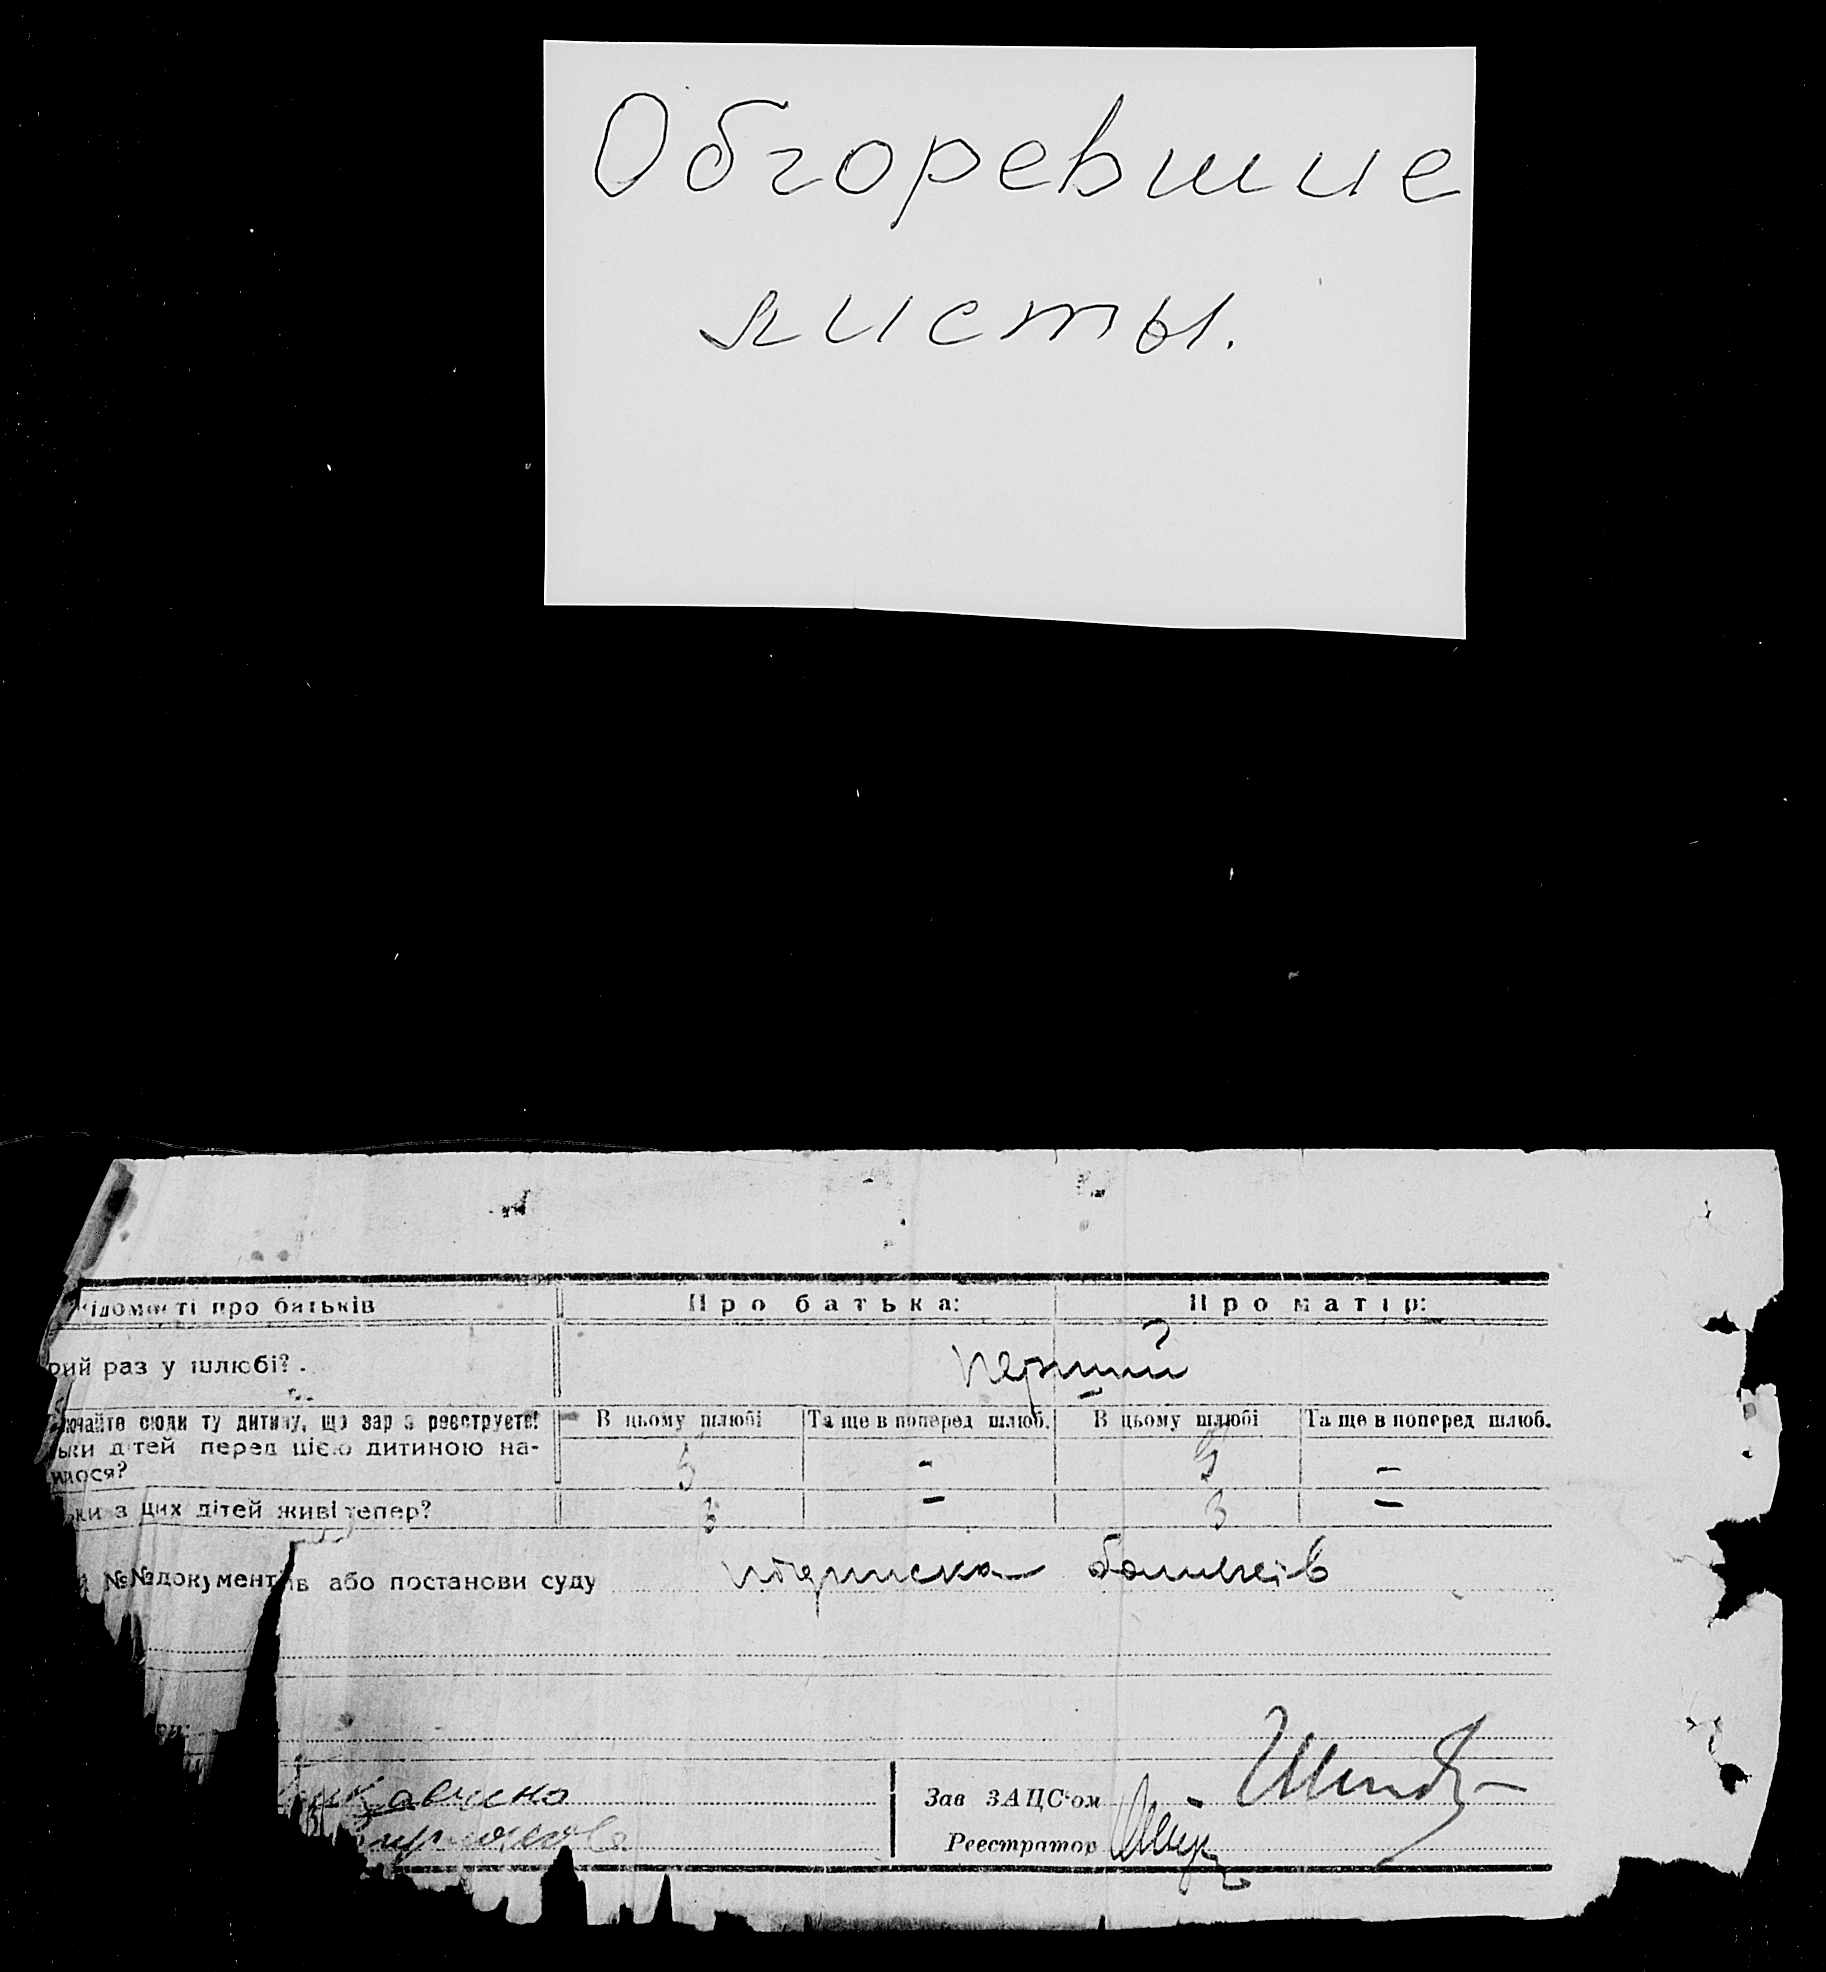 Обгоревшие
листы.
ідомості про батьків
Про батька:
Про матір:
рий раз у шлюбі?
перший
ючайте сюди ту дитину, що зараз реєструєте!
В цьому шлюбі
Та ще в поперед шлюб.
В цьому шлюбі
Та ще в поперед шлюб.
ьки дітей перед цією дитиною на-
илося?
5
-
5
-
ьки з цих дітей живі тепер?
3
-
3
-
№№ документів або постанови суду
підписка батьків
Зав ЗАЦС'ом
Реєстратор